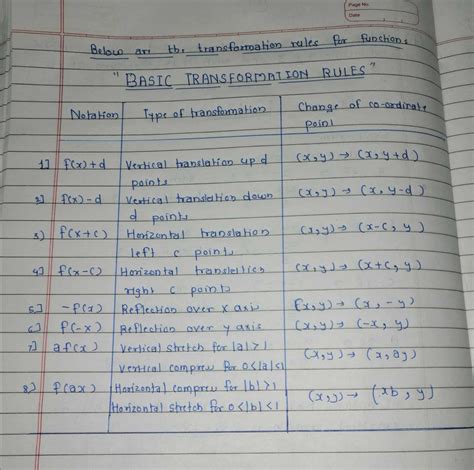 Page No.
Date
Below are the transformation rules for function:
"BASIC TRANSFORMATION RULES"
Notation Type of transformation Change of co-ordinate
point
1] f(x)+d Vertical translation up d (x,y) → (x, y+d)
points
2] f(x)-d Vertical translation down (x,y) → (x, y-d)
d points
3] f(x+c) Horizontal translation (x,y) → (x-c, y)
left c points
4] f(x-c) Horizontal (x,y) → (x+c, y)
right c points
5] -f(x) Reflection over x axis (x,y) → (x, -y)
6] f(-x) Reflection over y axis (x,y) → (-x, y)
7] af(x) Vertical stretch for |a|>1 (x,y) → (x, ay)
Vertical compress for 0<|a|<1
8] f(ax) Horizontal compress for |b|>1 (x,y) → (xb, y)
Horizontal stretch for 0<|b|<1